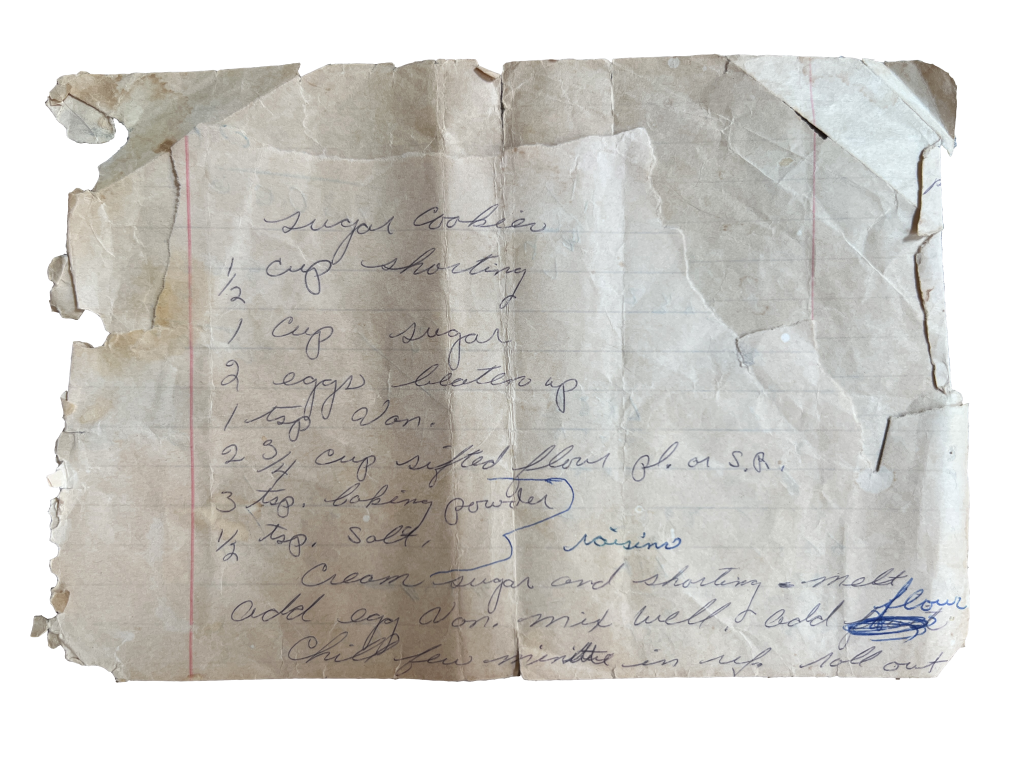 sugar Cookies
1/2 cup shorting
1 Cup sugar
2 eggs beaten up
1 tsp Van.
2 3/4 cup sifted flour pl. or S.R.
3 tsp. baking powder
1/2 tsp. Salt.
raisins
Cream sugar and shorting - melt
add egg Van. mix well. & add flour
Chill few in ref. roll out